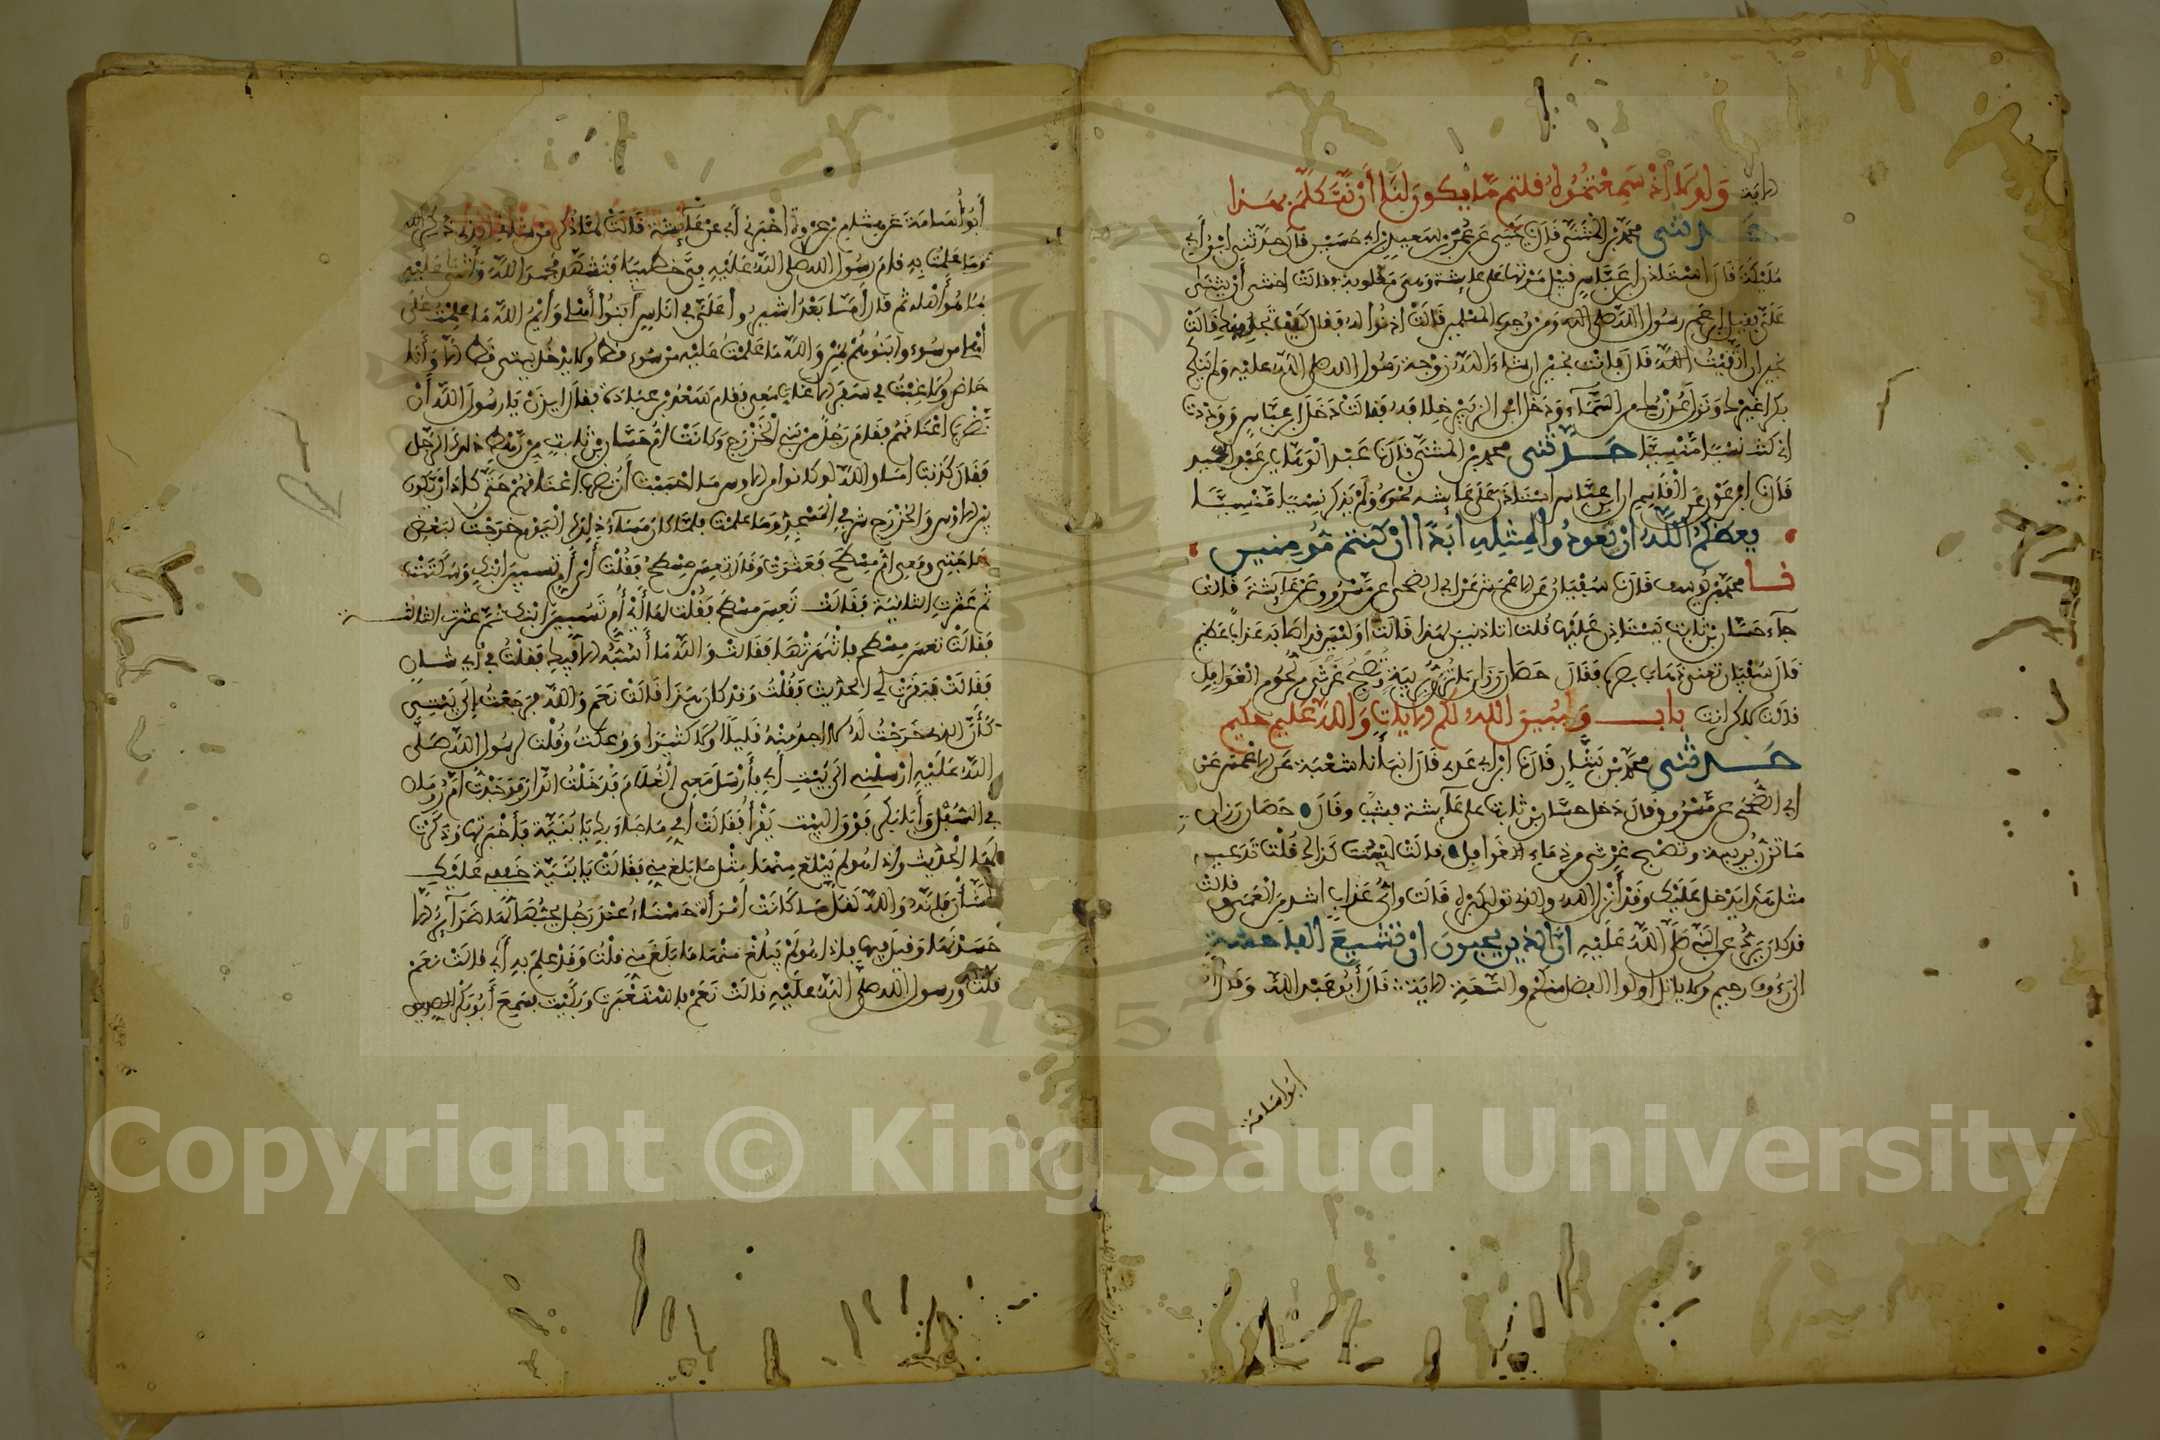 الاية ولولا اذ سمعتموه قلتم ما يكون لنا أن نتكلم بهذا
حدثني محمد بن المثنى قال نا يحيى عن عمر بن سعيد بن ابي حسين قال حدثني ابن ابي
مليكة قال استاذن ابن عباس قبيل موتها على عايشة وهي مغلوبة فقالت اخشى أن يثني
علي فقيل ابن عم رسول الله صلى الله ومن وجوه المسلمين قالت ائذنوا له فقال كيف تجدينك قالت
بخير ان اتقيت الله قال فانت بخير ان شاء الله زوجة رسول الله صلى الله عليه ولم ينكح
بكرا غيرك ونزل عذرك من السماء ودخل ابن الزبير خلافه فقالت دخل ابن عباس ووددت
اني كنت نسيا منسيا حدثني محمد بن المثنى قال نا عبد الوهاب بن عبد المجيد
قال نا ابن عون عن القاسم ان ابن عباس استاذن على عايشة نحوه ولم يذكر نسيا منسيا
يعظكم الله ان تعودوا لمثله ابدا ان كنتم مومنين
نا محمد بن يوسف قال نا سفيان عن الاعمش عن ابي الضحى عن مسروق عن عايشة قالت
جاء حسان بن ثابت يستاذن عليها قلت اتاذنين لهذا قالت اوليس قد اصابه عذاب عظيم
قال سفيان تعني ذهاب بصره فقال حصان رزان ما تزن بريبة وتصبح غرثى من لحوم الغوافل
قالت لاكن انت باب ويبين الله لكم الايات والله عليم حكيم
حدثني محمد بن بشار قال نا ابن ابي عدي قال انبانا شعبة عن الاعمش عن
ابي الضحى عن مسروق قال دخل حسان بن ثابت على عايشة فشبب وقال حصان رزان
ما تزن بريبة وتصبح غرثى من دماء الغوافل قالت لست كذاك قلت تدعين
مثل هذا يدخل عليك وقد أنزل الله والذي تولى كبره قالت واي عذاب اشد من العمى وقالت
قد كان يرد عن النبي صلى الله عليه ان الذين يحبون ان تشيع الفاحشة
الى رءوف رحيم ولا ياتل اولوا الفضل منكم والسعة الاية قال أبو عبد الله وقال
ابو اسامة
أبو أسامة عن هشام بن عروة أخبرني أبي عن عايشة قالت لما ذكر من شاني الذي ذكر
وما علمت به قام رسول الله صلى الله عليه في خطيبا فتشهد فحمد الله وأثنى عليه
بما هو أهله ثم قال أما بعد اشيروا علي في اناس أبنوا أهلي وأيم الله ما علمت على
أهلي من سوء وابنوهم بمن والله ما علمت عليه من سوء قط ولا يدخل بيتي قط الا وأنا
حاضر ولا غبت في سفر الا غاب معي فقام سعد بن عبادة فقال ايذن يا رسول الله أن
نضرب اعناقهم فقام رجل من بني الخزرج وكانت ام حسان بن ثابت من رهط ذلك الرجل
فقال كذبت اما والله لو كانوا من الاوس ما احببت أن تضرب اعناقهم حتى كاد أن يكون
بين الاوس والخزرج شر في المسجد وما علمت فلما كان مساء ذلك اليوم خرجت لبعض
حاجتي ومعي ام مسطح فعثرت وقالت تعس مسطح فقلت أي أم تسبين ابنك وسكتت
ثم عثرت الثانية فقالت تعس مسطح فقلت لها أي أم تسبين ابنك ثم عثرت الثالثة
فقالت تعس مسطح فانتهرتها فقالت والله ما أسبه الا فيك فقلت في أي شاني
فقالت فبقرت لي الحديث فقلت وقد كان هذا قالت نعم والله فرجعت إلى بيتي
كأن الذي خرجت له لا اجد منه قليلا ولا كثيرا ووعكت وقلت لرسول الله صلى
الله عليه ارسلني الى بيت أبي فأرسل معي الغلام فدخلت الدار فوجدت ام رومان
في السفل وأبا بكر فوق البيت يقرأ فقالت أمي ما جاء بك يا بنية فأخبرتها وذكرت
لها الحديث واذا هو لم يبلغ منها مثل ما بلغ مني فقالت يا بنية خففي عليك
الشان فانه والله لقل ما كانت امرأة حسناء عند رجل يحبها لها ضرائر الا
حسدنها وقيل فيها فاذا هو لم يبلغ منها ما بلغ مني قلت وقد علم به أبي قالت نعم
قلت ورسول الله صلى الله عليه قالت نعم فاستعبرت وبكيت فسمع أبو بكر صوتي
Copyright © King Saud University
1957